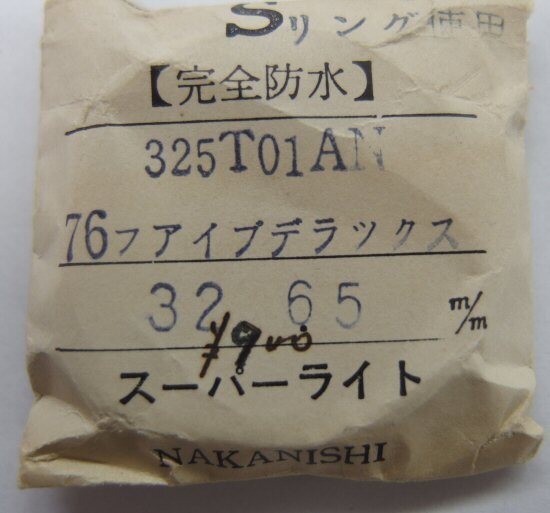 Sリング使用
【完全防水】
325T01AN
76フアイブデラックス
32 65 m/m
¥900
スーパーライト
NAKANISHI